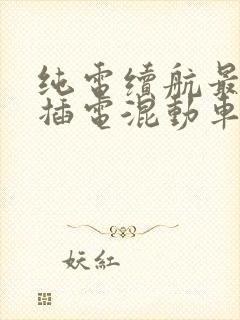 纯電續航最
插電混動車
妖紅